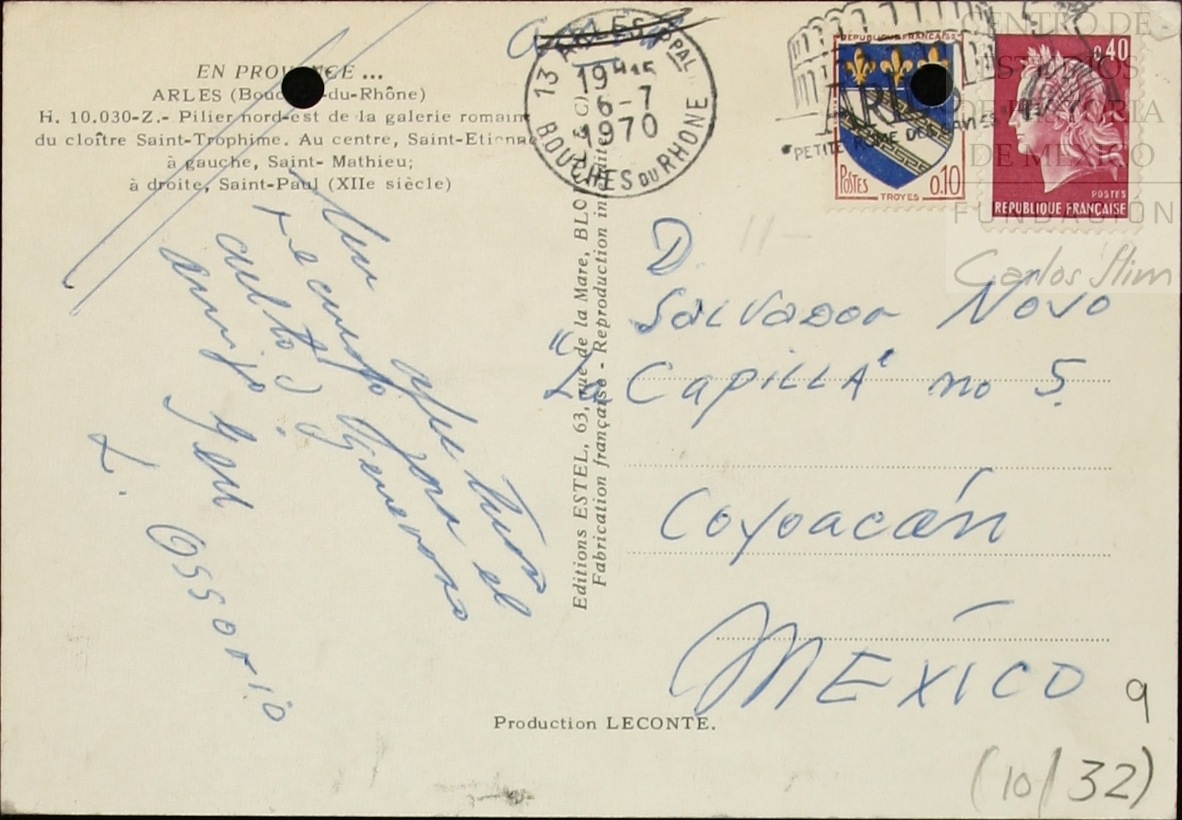 EN PROVENCE ...
ARLES (Bouches-du-Rhône)
H. 10.030-Z.- Pilier nord-est de la galerie romane
du cloître Saint-Trophime. Au centre, Saint-Etienne
à gauche, Saint- Mathieu;
à droite, Saint-Paul (XIIe siècle)
Un
recuerdo para el
culto y generoso
amigo
L. Ossorio
Editions ESTEL, 63, rue de la Mare, BLO
Fabrication française - Reproduction interdite
13 ARLES PPAL
19H15
6-7
1970
BOUCHES DU RHONE
ARLES
REPUBLIQUE FRANÇAISE
POSTES 0.10
TROYES
0,40
POSTES
REPUBLIQUE FRANÇAISE
CENTRO DE
ESTUDIOS
DE HISTORIA
DE MÉXICO
FUNDACIÓN
Carlos Slim
11-
D.
Salvador Novo
"La Capilla" no 5.
Coyoacán
MÉXICO
Production LECONTE.
9
(10/32)